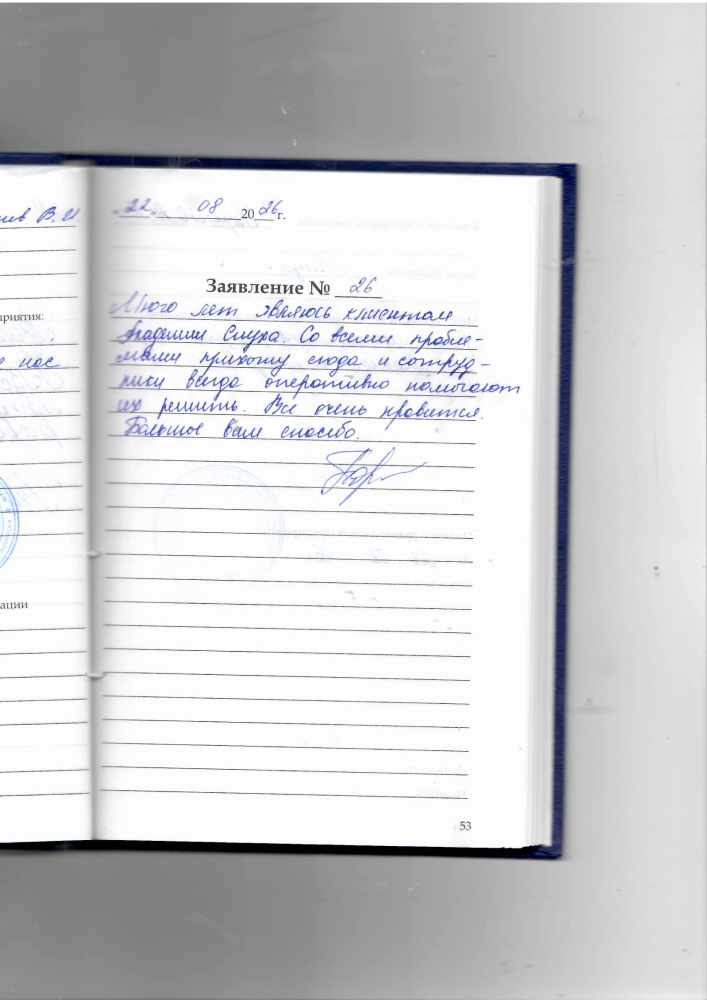 В. И
приятия:
нас
ации
22 08 2026 г.
Заявление № 26
Много лет являюсь клиентом
Академии Слуха. Со всеми пробле-
мами прихожу сюда и сотруд-
ники всегда оперативно помогают
их решить. Все очень нравится.
Большое вам спасибо.
53